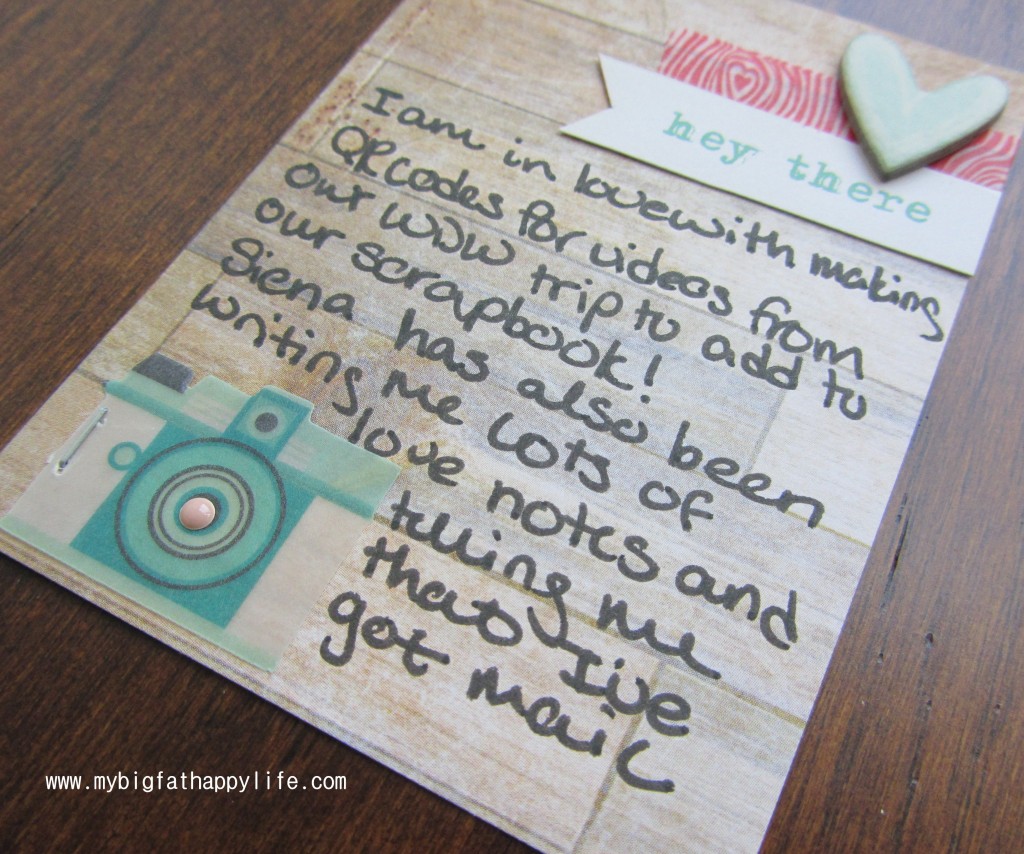 hey there
I am in love with making
QR codes for videos from
our WDW trip to add to
our scrapbook!
Siena has also been
writing me lots of
love notes and
telling me
that I've
got mail
www.mybigfathappylife.com